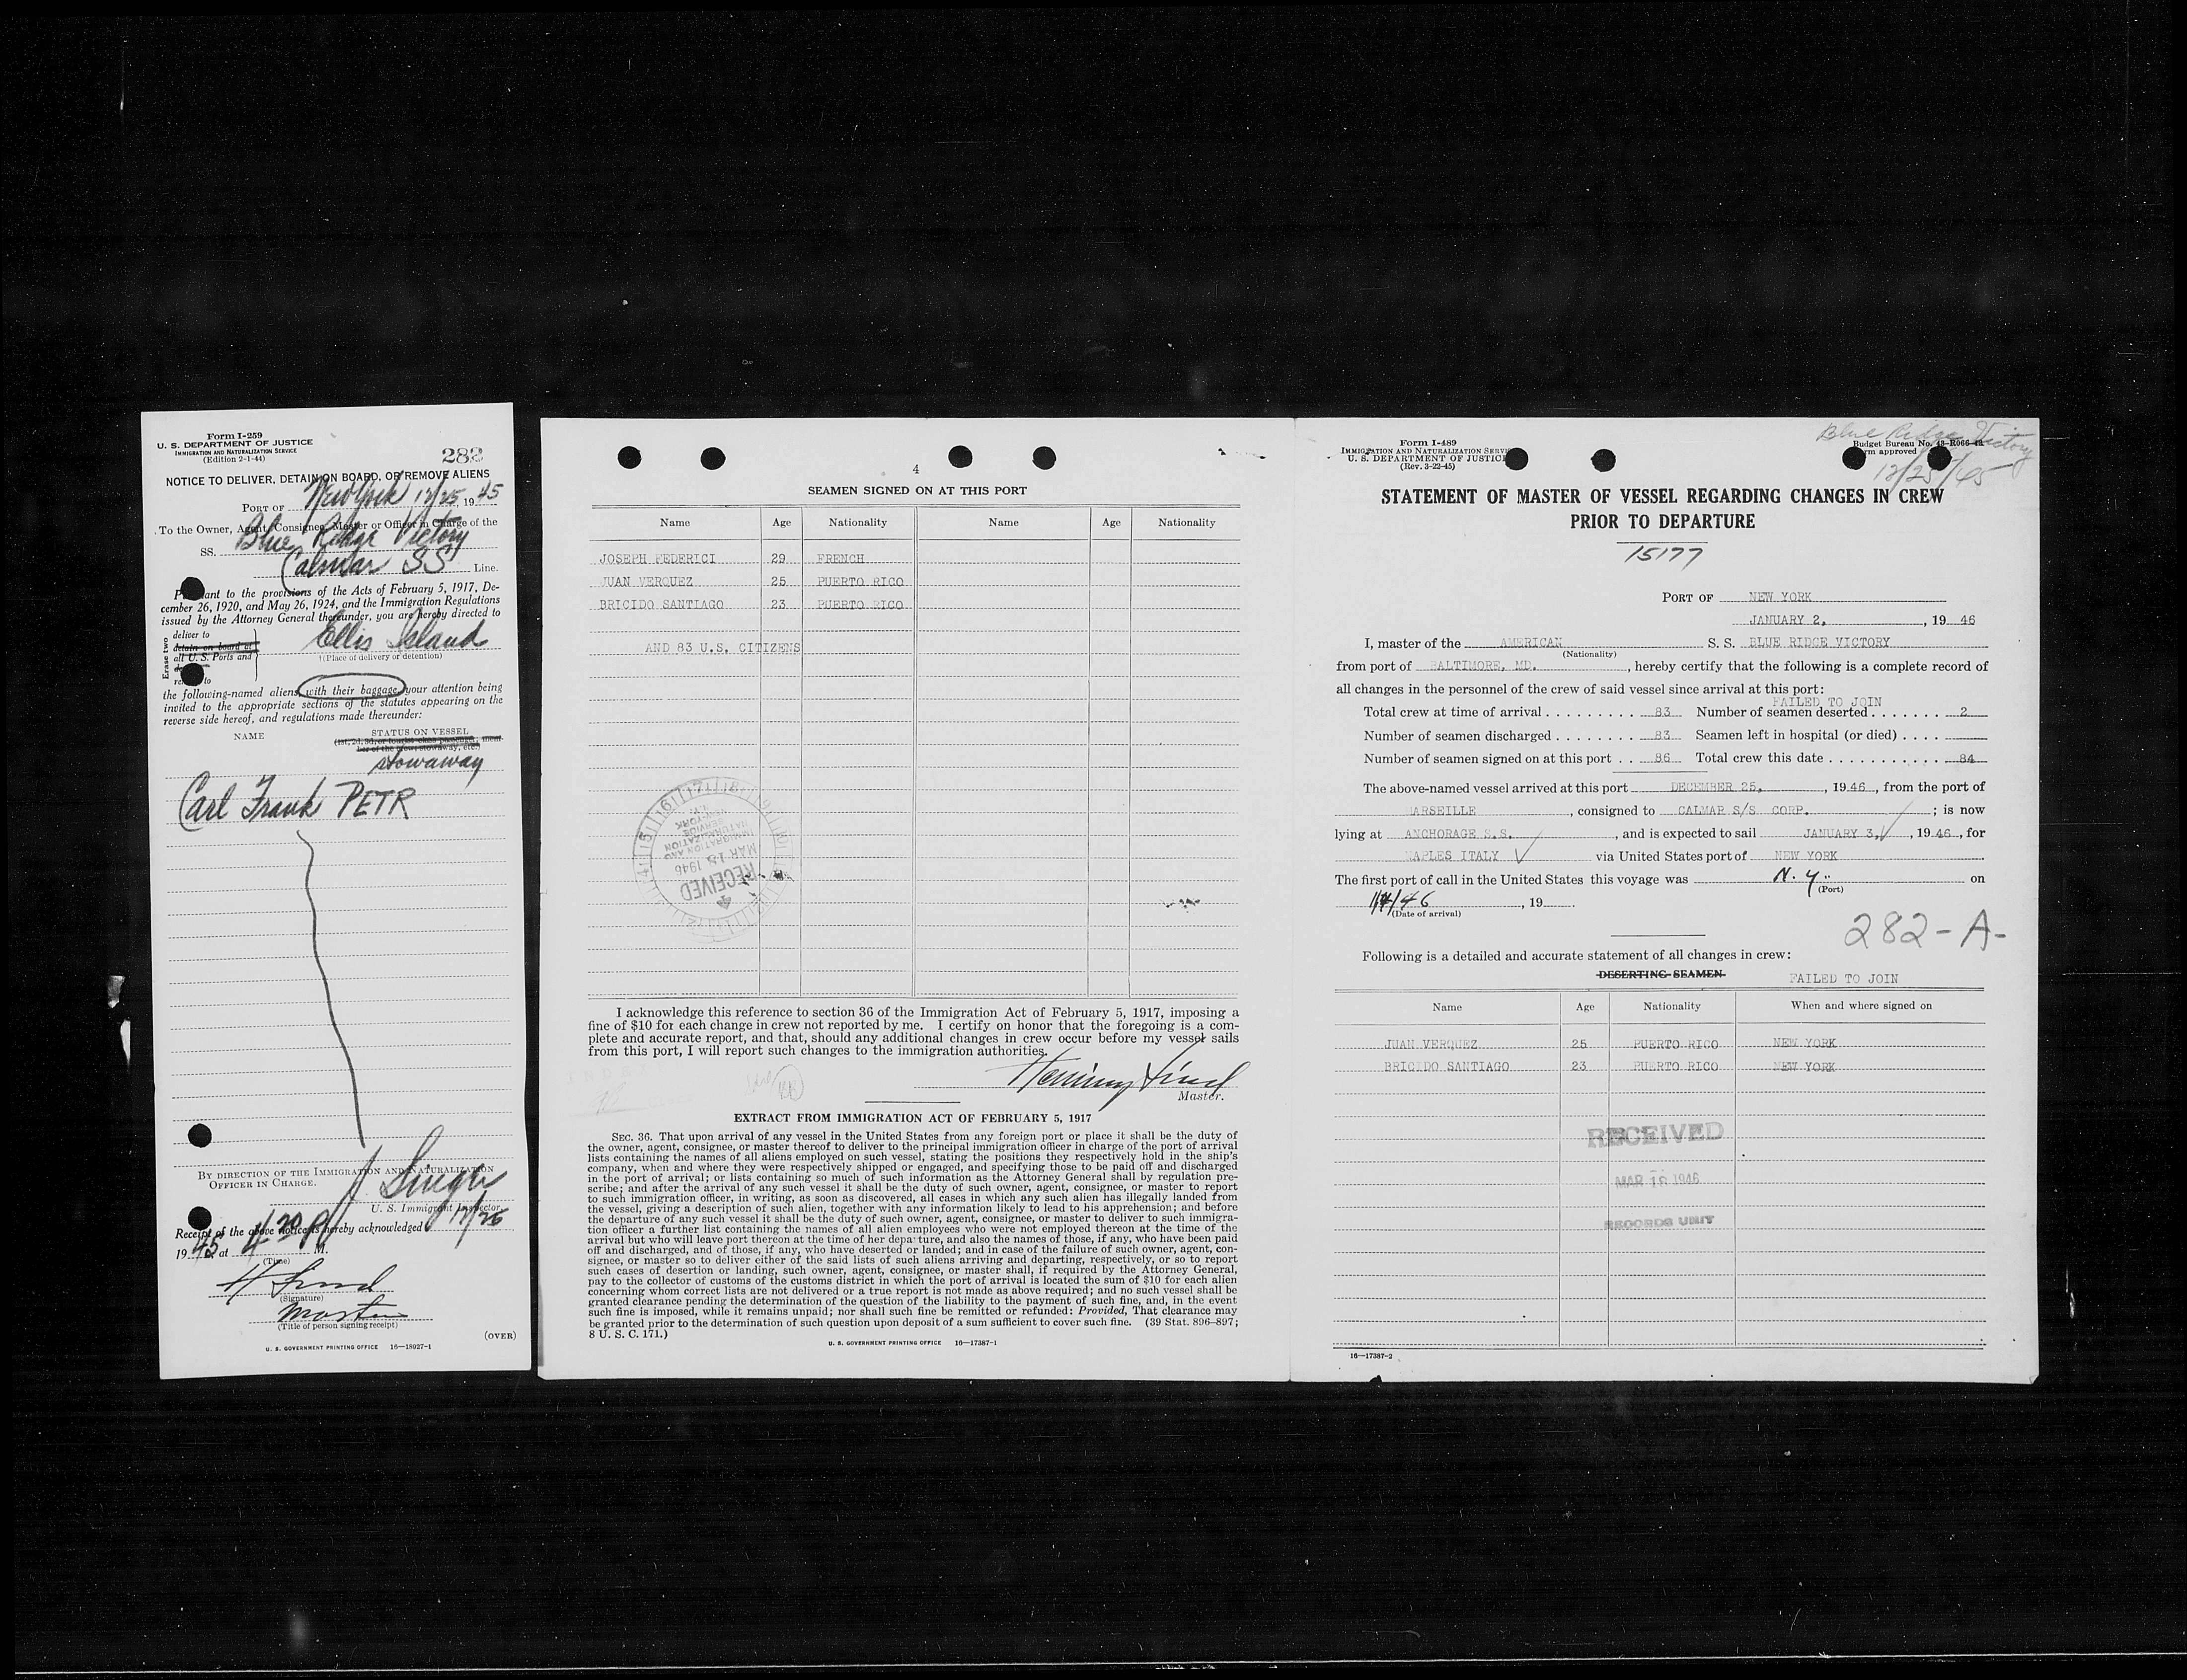 Form I-259
U. S. DEPARTMENT OF JUSTICE
IMMIGRATION AND NATURALIZATION SERVICE
(Edition 2-1-44)
282
NOTICE TO DELIVER, DETAIN ON BOARD, OR REMOVE ALIENS
PORT OF New York 12/25 1945
To the Owner, Agent, Consignee, Master or Officer in Charge of the
SS. Blue Ridge Victory
Calmar SS Line.
Pursuant to the provisions of the Acts of February 5, 1917, De-
cember 26, 1920, and May 26, 1924, and the Immigration Regulations
issued by the Attorney General thereunder, you are hereby directed to
Erase two
deliver to
detain on board at
all U. S. Ports and
Ellis Island
(Place of delivery or detention)
to
the following-named aliens, with their baggage, your attention being
invited to the appropriate sections of the statutes appearing on the
reverse side hereof, and regulations made thereunder:
NAME STATUS ON VESSEL
(1st, 2d, 3d, or tourist class passenger, mem-
ber of the crew, stowaway, etc.)
stowaway
Carl Frank PETR
BY DIRECTION OF THE IMMIGRATION AND NATURALIZATION
OFFICER IN CHARGE.
U. S. Immigrant Inspector.
Receipt of the above notice is hereby acknowledged 12/25
1945 at 4 20 P M.
(Time)
(Signature)
Master
(Title of person signing receipt)
(OVER)
U. S. GOVERNMENT PRINTING OFFICE 16—18927-1
4
SEAMEN SIGNED ON AT THIS PORT
Name Age Nationality Name Age Nationality
JOSEPH FEDERICI 29 FRENCH
JUAN VERQUEZ 25 PUERTO RICO
BRICIDO SANTIAGO 23 PUERTO RICO
AND 83 U.S. CITIZENS
RECEIVED
MAR 15 1946
IMMIGRATION AND
NATURALIZATION
SERVICE
I acknowledge this reference to section 36 of the Immigration Act of February 5, 1917, imposing a
fine of $10 for each change in crew not reported by me. I certify on honor that the foregoing is a com-
plete and accurate report, and that, should any additional changes in crew occur before my vessel sails
from this port, I will report such changes to the immigration authorities.
Master.
EXTRACT FROM IMMIGRATION ACT OF FEBRUARY 5, 1917
SEC. 36. That upon arrival of any vessel in the United States from any foreign port or place it shall be the duty of
the owner, agent, consignee, or master thereof to deliver to the principal immigration officer in charge of the port of arrival
lists containing the names of all aliens employed on such vessel, stating the positions they respectively hold in the ship's
company, when and where they were respectively shipped or engaged, and specifying those to be paid off and discharged
in the port of arrival; or lists containing so much of such information as the Attorney General shall by regulation pre-
scribe; and after the arrival of any such vessel it shall be the duty of such owner, agent, consignee, or master to report
to such immigration officer, in writing, as soon as discovered, all cases in which any such alien has illegally landed from
the vessel, giving a description of such alien, together with any information likely to lead to his apprehension; and before
the departure of any such vessel it shall be the duty of such owner, agent, consignee, or master to deliver to such immigra-
tion officer a further list containing the names of all alien employees who were not employed thereon at the time of the
arrival but who will leave port thereon at the time of her departure, and also the names of those, if any, who have been paid
off and discharged, and of those, if any, who have deserted or landed; and in case of the failure of such owner, agent, con-
signee, or master so to deliver either of the said lists of such aliens arriving and departing, respectively, or so to report
such cases of desertion or landing, such owner, agent, consignee, or master shall, if required by the Attorney General,
pay to the collector of customs of the customs district in which the port of arrival is located the sum of $10 for each alien
concerning whom correct lists are not delivered or a true report is not made as above required; and no such vessel shall be
granted clearance pending the determination of the question of the liability to the payment of such fine, and, in the event
such fine is imposed, while it remains unpaid; nor shall such fine be remitted or refunded: Provided, That clearance may
be granted prior to the determination of such question upon deposit of a sum sufficient to cover such fine. (39 Stat. 896–897;
8 U. S. C. 171.)
U. S. GOVERNMENT PRINTING OFFICE 16—17387-1
Form I-489
IMMIGRATION AND NATURALIZATION SERVICE
U. S. DEPARTMENT OF JUSTICE
(Rev. 3-22-45)
Blue Ridge Victory
12/25/45
Budget Bureau No. 43-R066-42
Form approved
STATEMENT OF MASTER OF VESSEL REGARDING CHANGES IN CREW
PRIOR TO DEPARTURE
15177
PORT OF NEW YORK
JANUARY 2, , 19 46
I, master of the AMERICAN S. S. BLUE RIDGE VICTORY
(Nationality)
from port of BALTIMORE, MD. , hereby certify that the following is a complete record of
all changes in the personnel of the crew of said vessel since arrival at this port:
FAILED TO JOIN
Total crew at time of arrival . . . . . . . . . 83 Number of seamen deserted . . . . . . . 2
Number of seamen discharged . . . . . . . . 83 Seamen left in hospital (or died) . . . .
Number of seamen signed on at this port . . 86 Total crew this date . . . . . . . . . . . . 84
The above-named vessel arrived at this port DECEMBER 25, , 19 46 , from the port of
MARSEILLE , consigned to CALMAR S/S CORP. ; is now
lying at ANCHORAGE S.S. , and is expected to sail JANUARY 3, , 19 46 , for
NAPLES ITALY via United States port of NEW YORK
The first port of call in the United States this voyage was N. Y. on
(Port)
46 , 19
(Date of arrival)
282-A-
Following is a detailed and accurate statement of all changes in crew:
DESERTING SEAMEN FAILED TO JOIN
Name Age Nationality When and where signed on
JUAN VERQUEZ 25 PUERTO RICO NEW YORK
BRICIDO SANTIAGO 23 PUERTO RICO NEW YORK
RECEIVED
MAR 15 1946
RECORDS UNIT
16—17387-2